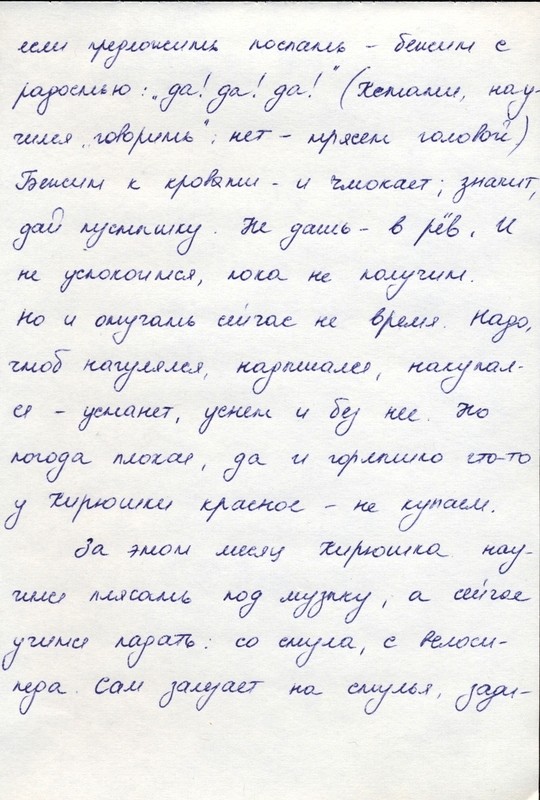 если предложить поспать – бежит с
радостью: „да! да! да!" (Кстати, нау-
чился „говорить": нет – трясет головой)
Бежит к кровати – и чмокает; значит,
дай пустышку. Не дашь – в рёв. И
не успокоится, пока не получит.
Но и отучать сейчас не время. Надо,
чтоб нагулялся, надышался, накупал-
ся – устанет, уснет и без нее. Но
погода плохая, да и горлышко что-то
у Кирюшки красное – не купаем.
За этот месяц Кирюшка нау-
чился плясать под музыку, а сейчас
учится падать: со стула, с велоси-
педа. Сам залезает на стулья, зади-